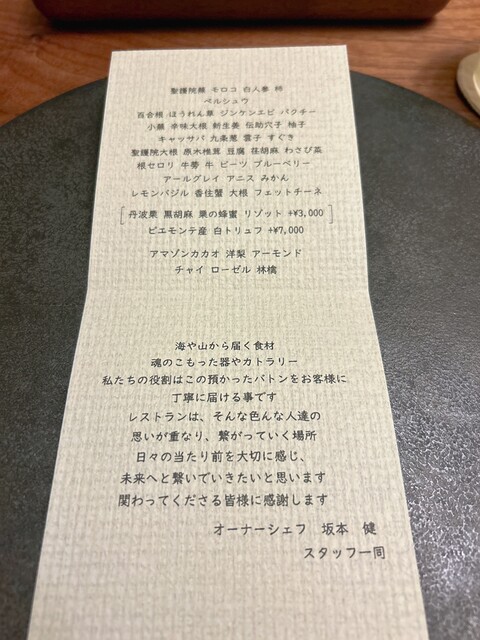 聖護院蕪 モロコ 白人参 柿
ペルシュウ
百合根 ほうれん草 ジンケンエビ パクチー
小蕪 辛味大根 新生姜 伝助穴子 柚子
キャッサバ 九条葱 雲子 すぐき
聖護院大根 原木椎茸 豆腐 荏胡麻 わさび菜
根セロリ 牛蒡 牛 ビーツ ブルーベリー
アールグレイ アニス みかん
レモンバジル 香住蟹 大根 フェットチーネ
[丹波栗 黒胡麻 栗の蜂蜜 リゾット +¥3,000]
ピエモンテ産 白トリュフ +¥7,000
アマゾンカカオ 洋梨 アーモンド
チャイ ローゼル 林檎
海や山から届く食材
魂のこもった器やカトラリー
私たちの役割はこの預かったバトンをお客様に
丁寧に届ける事です
レストランは、そんな色んな人達の
思いが重なり、繋がっていく場所
日々の当たり前を大切に感じ、
未来へと繋いでいきたいと思います
関わってくださる皆様に感謝します
オーナーシェフ 坂本 健
スタッフ一同